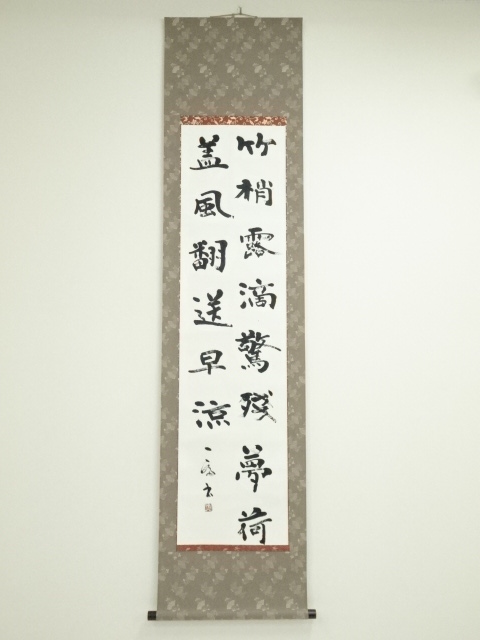 竹梢露滴驚残夢荷
盖風翻送早涼